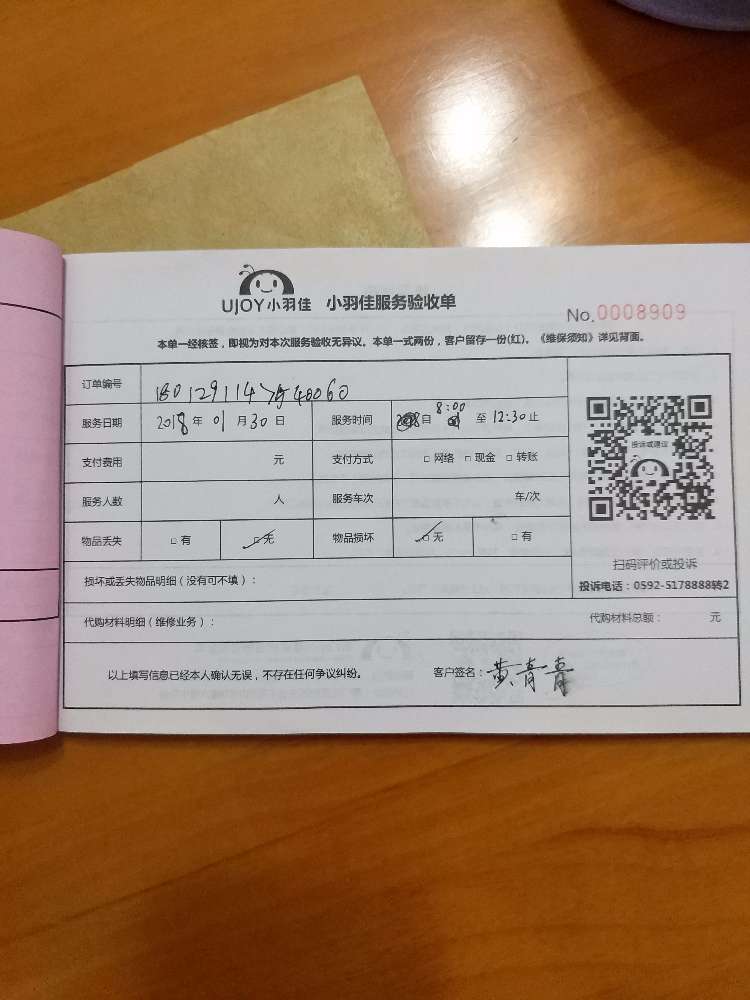 UJOY小羽佳 小羽佳服务验收单
No.0008909
本单一经核签，即视为对本次服务验收无异议。本单一式两份，客户留存一份(红)。《维保须知》详见背面。
订单编号 180129114 40060
服务日期 2018年 01月30日 服务时间 自 8:00 至 12:30止
投诉或建议
支付费用 元 支付方式 □ 网络 □ 现金 □ 转账
服务人数 人 服务车次 车/次
物品丢失 □ 有 □ 无 物品损坏 □ 无 □ 有
扫码评价或投诉
损坏或丢失物品明细（没有可不填）：
投诉电话：0592-5178888转2
代购材料明细（维修业务）： 代购材料总额： 元
以上填写信息已经本人确认无误，不存在任何争议纠纷。 客户签名：黄青青